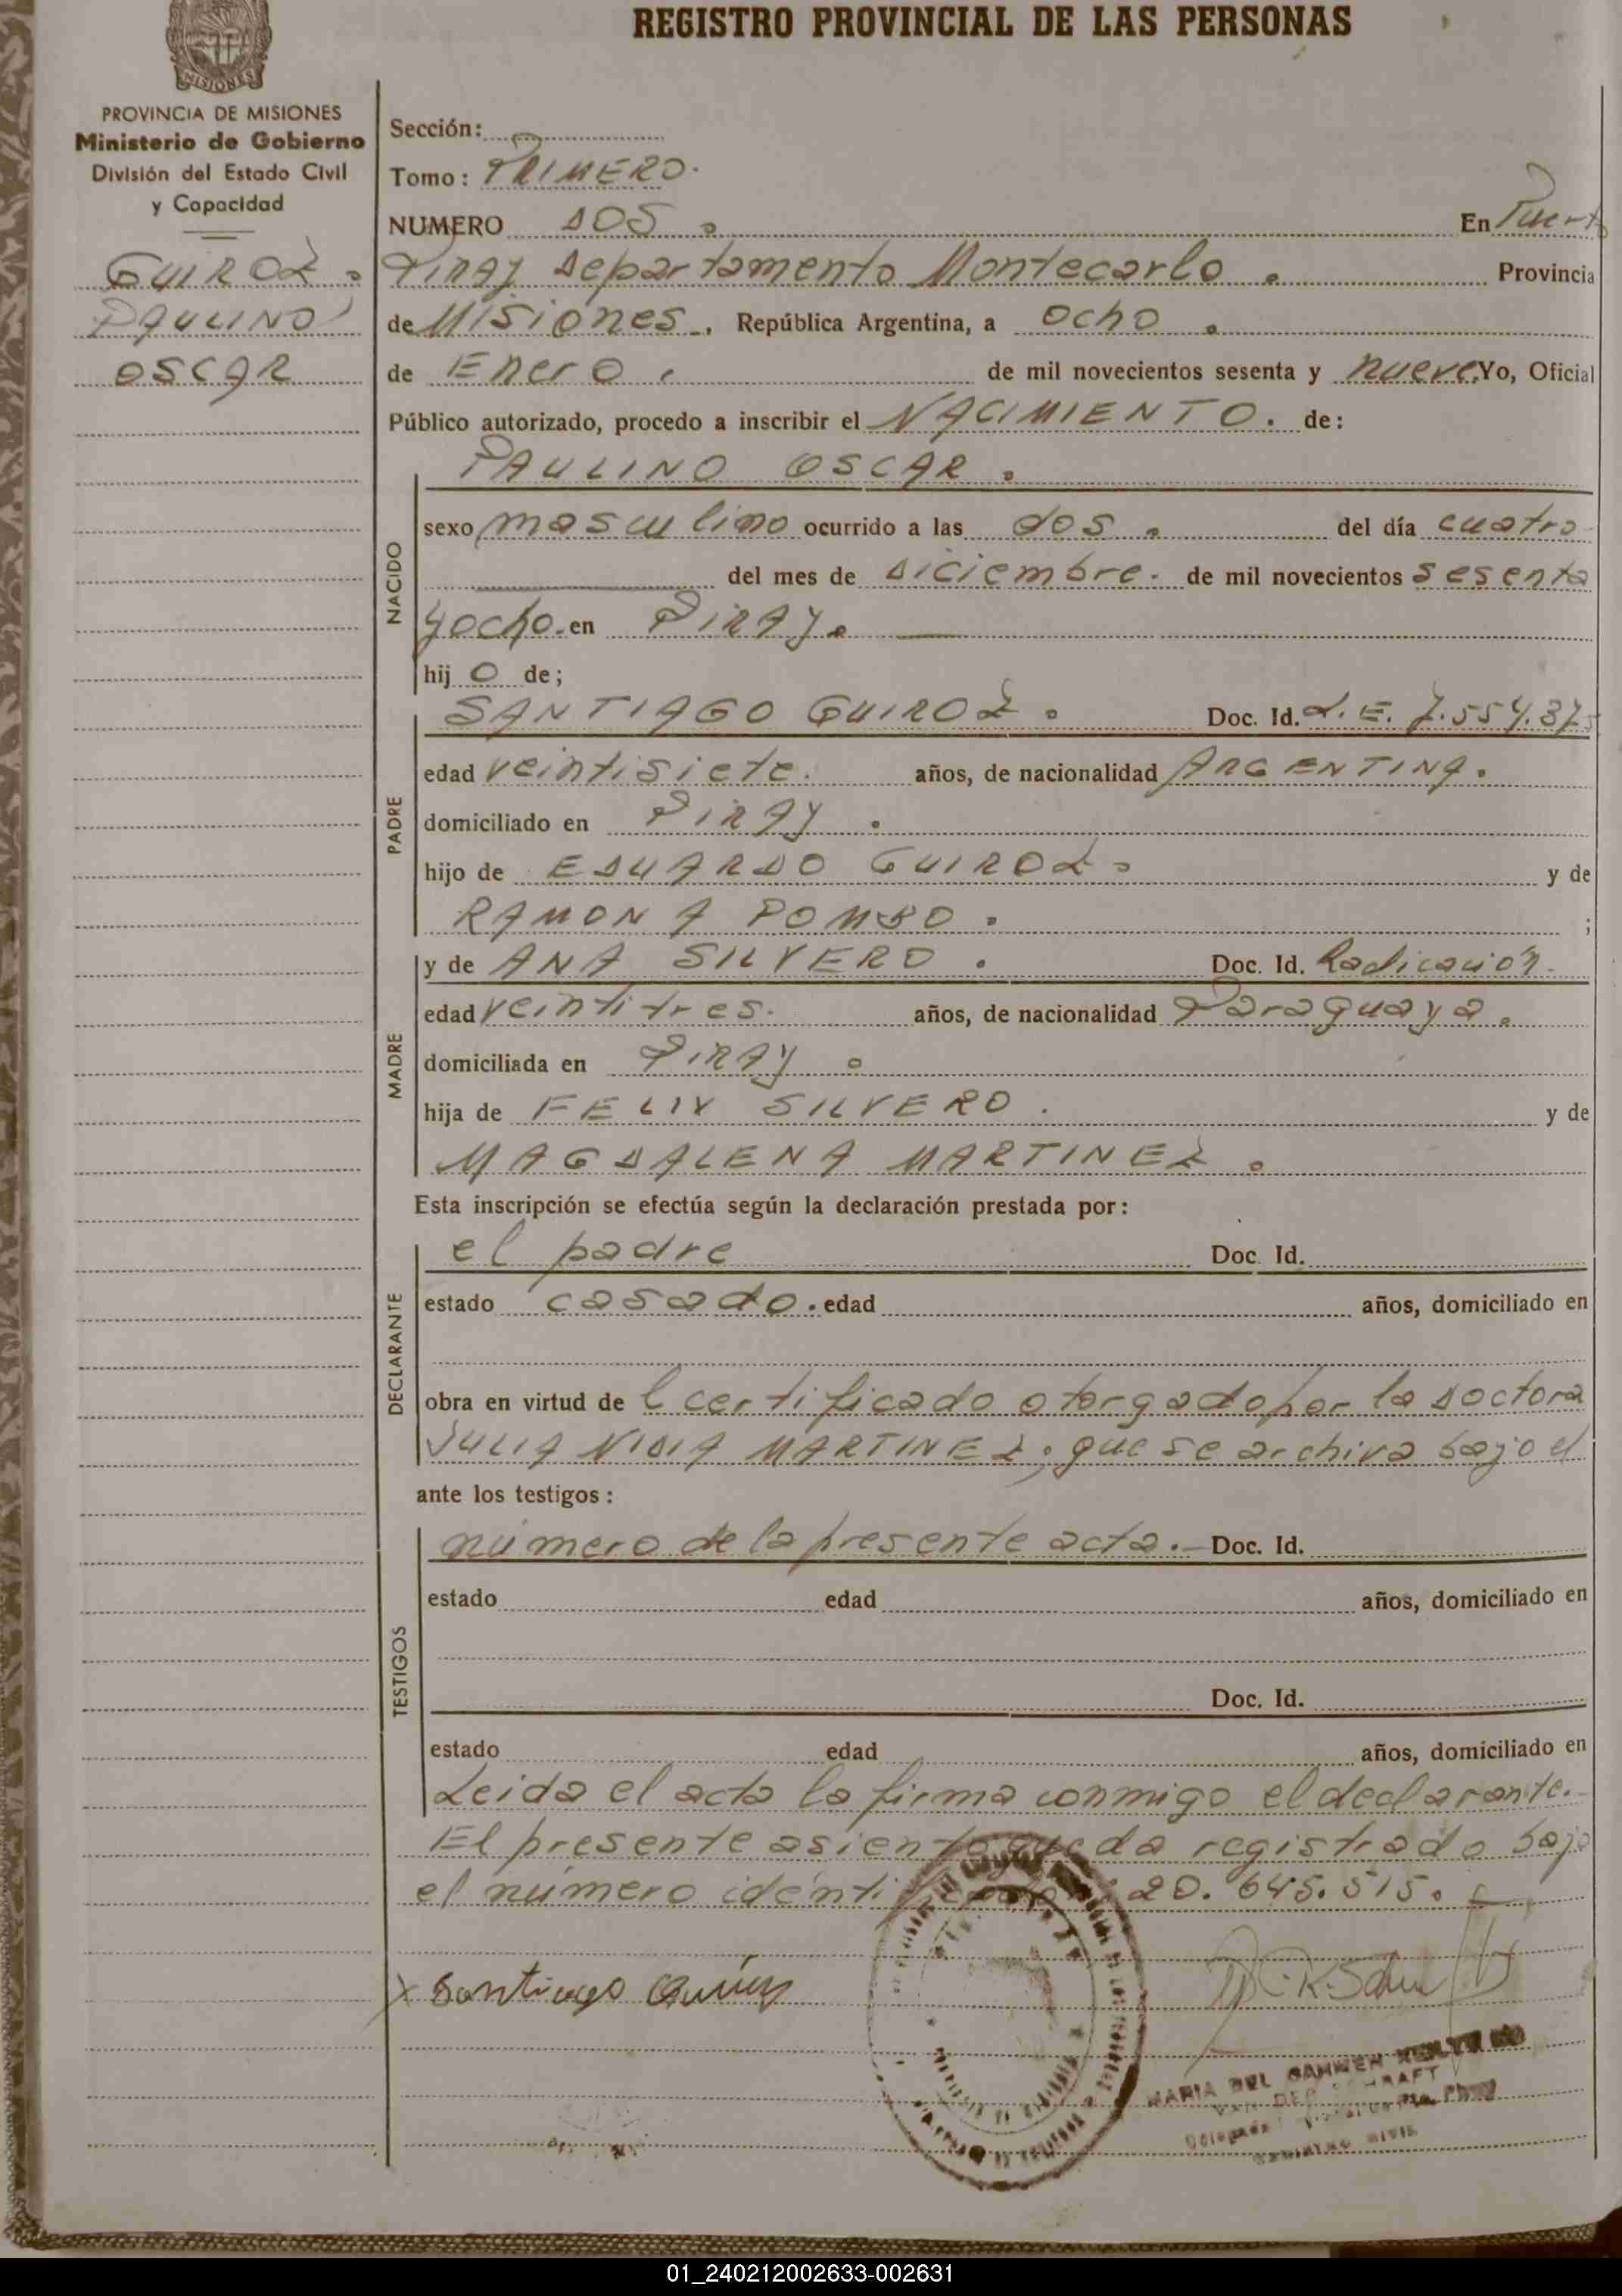 REGISTRO PROVINCIAL DE LAS PERSONAS
MISIONES
PROVINCIA DE MISIONES
Ministerio de Gobierno
División del Estado Civil
y Capacidad
GUIROZ.
PAULINO
OSCAR
Sección:
Tomo: PRIMERO.
NUMERO DOS. En Puerto
PIRAY Departamento Montecarlo. Provincia
de Misiones. República Argentina, a ocho.
de Enero. de mil novecientos sesenta y nueve. Yo, Oficial
Público autorizado, procedo a inscribir el NACIMIENTO. de:
PAULINO OSCAR.
NACIDO
sexo masculino ocurrido a las dos. del día cuatro
del mes de Diciembre. de mil novecientos sesenta
y ocho. en PIRAY.
hij o de;
PADRE
SANTIAGO GUIROZ. Doc. Id. L.E. 7.554.375
edad veintisiete. años, de nacionalidad ARGENTINA.
domiciliado en PIRAY.
hijo de EDUARDO GUIROZ. y de
RAMONA POMBO. ;
MADRE
y de ANA SILVERO. Doc. Id. Radicación.
edad veintitres. años, de nacionalidad Paraguaya.
domiciliada en PIRAY.
hija de FELIX SILVERO. y de
MAGDALENA MARTINEZ.
Esta inscripción se efectúa según la declaración prestada por:
DECLARANTE
el padre Doc. Id.
estado casado. edad años, domiciliado en
obra en virtud de l certificado otorgado por la Doctora
JULIA NIDIA MARTINEZ, que se archiva bajo el
ante los testigos:
TESTIGOS
número de la presente acta.- Doc. Id.
estado edad años, domiciliado en
Doc. Id.
estado edad años, domiciliado en
Leida el acta la firma conmigo el declarante.-
El presente asiento queda registrado bajo
el número 20.645.515.
x Santiago
MARIA DEL CARMEN
VAN DER
REGISTRO CIVIL
01_240212002633-002631